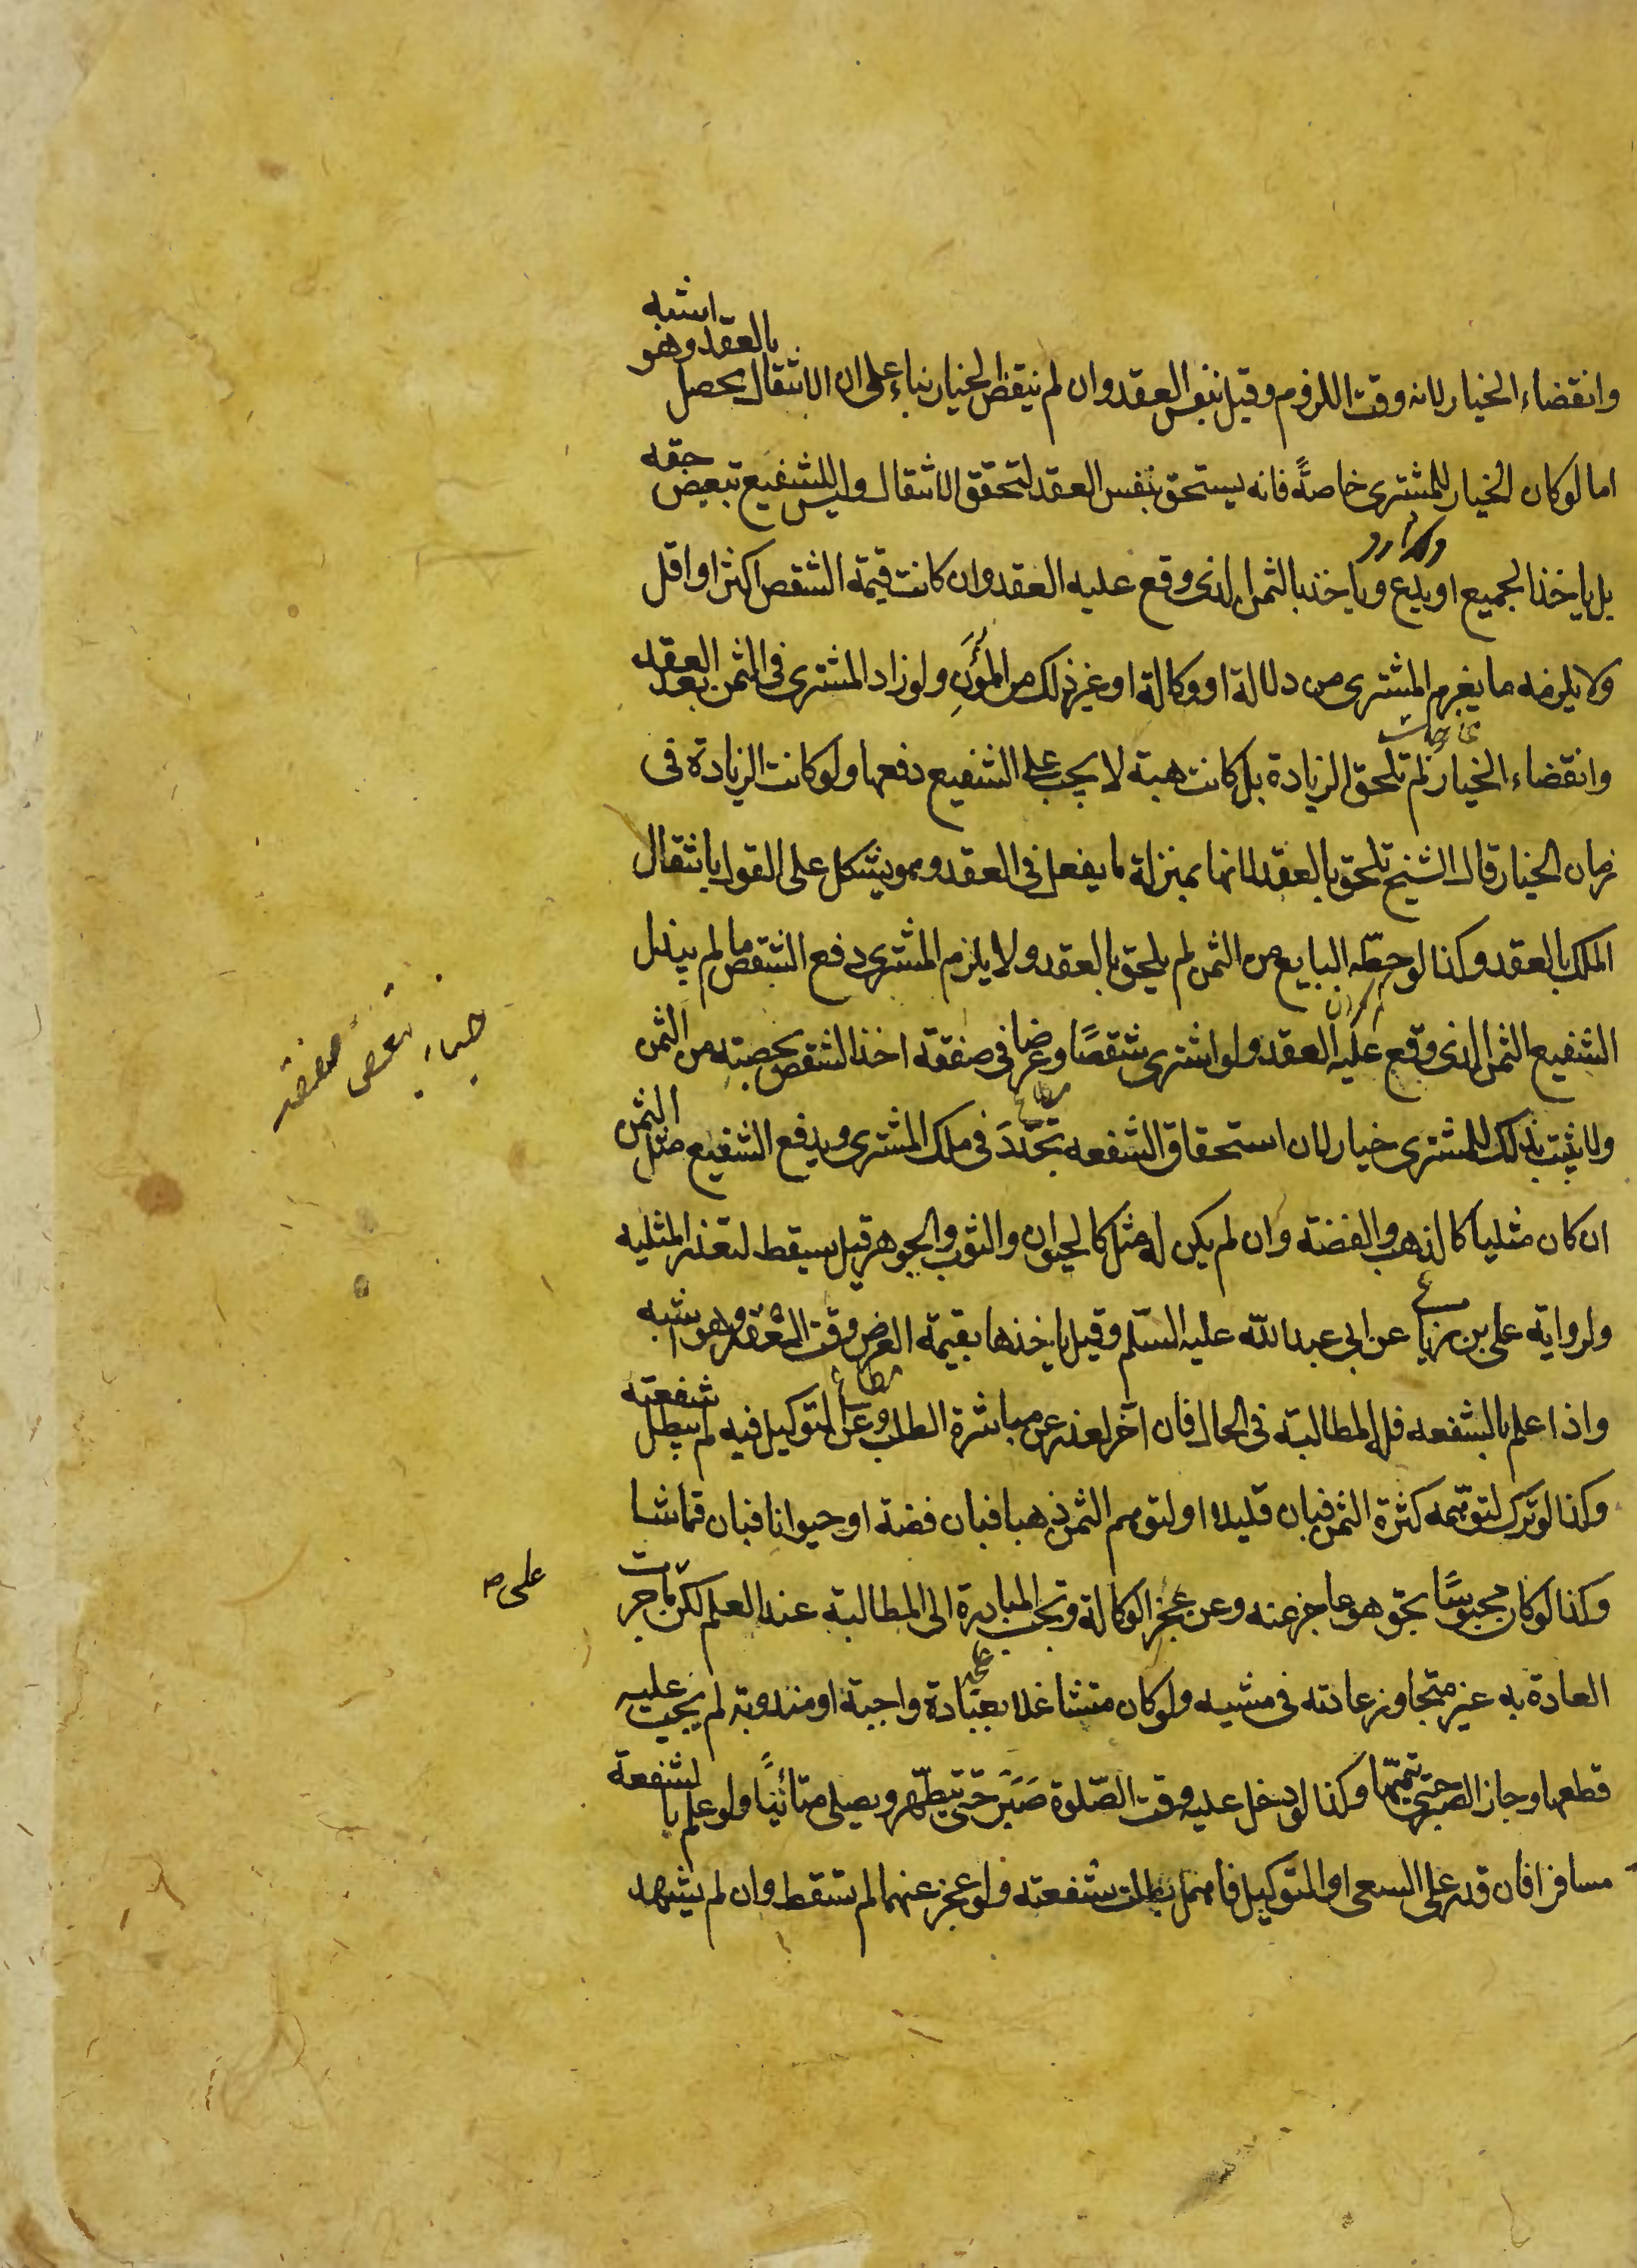 وانقضاء الخيار لانه وقت اللزوم وقيل بنفس العقد وان لم ينقض الخيار بناء على ان الانتقال يحصل بالعقد وهو اشبه
اما لو كان الخيار للمشترى خاصةً فانه يستحق بنفس العقد لتحقق الانتقال وليس للشفيع تبعيض حقه
بل ياخذ الجميع او يدع وياخذ بالثمن الذى وقع عليه العقد وان كانت قيمة الشقص اكثر او اقل
ولا يلزمه ما يغرم المشترى من دلالة او وكالة او غير ذلك من المؤن ولو زاد المشترى فى الثمن بعد العقد
وانقضاء الخيار لم تلحق الزيادة بل كانت هبة لا يجب على الشفيع دفعها ولو كانت الزيادة فى
زمان الخيار قال الشيخ تلحق بالعقد لانها بمنزلة ما يفعل فى العقد وهو يشكل على القول بانتقال
الملك بالعقد وكذا لو حطّه البايع من الثمن لم يلحق بالعقد ولا يلزم المشترى دفع الشقص ما لم يبذل
الشفيع الثمن الذى وقع عليه العقد ولو اشترى شقصًا وعرضا فى صفقة اخذ الشقص بحصته من الثمن
ولا يثبت بذلك للمشترى خيار لان استحقاق الشفعه تجدّدَ فى ملك المشترى ويدفع الشفيع مثل الثمن
ان كان مثليا كالذهب والفضة وان لم يكن له مثل كالحيوان والثوب والجوهر قيل يسقط لتعذر المثليه
ولرواية على بن رياب عن ابى عبد الله عليه السّلم وقيل ياخذها بقيمة العرض وقت العقد وهو اشبه
واذا علم بالشفعه فله المطالبة فى الحال فان اخّر لعذر عن مباشرة الطلب وعن التوكيل فيه لم تبطل شفعته
وكذا لو ترك لتوهّمه كثرة الثمن فبان قليلا او لتوهم الثمن ذهبا فبان فضة او حيوانا فبان قماشا
وكذا لو كان محبوسًا بحق هو عاجز عنه وعن عجز الوكالة وتجب المبادرة الى المطالبة عند العلم لكن بما جرت
على
العادة به غير متجاوز عادته فى مشيه ولو كان متشاغلا بعبادة واجبة او مندوبة لم يجب عليه
قطعها وجاز الصبر حتى يتمّها وكذا لو دخل عليه وقت الصّلوة صَبَرَ حتّى يتطهّر ويصلى متأنّيًا ولو علم بالشفعة
مسافرا فان قدر على السعى او التوكيل فاهمل بطلت شفعته ولو عجز عنهما لم تسقط وان لم يشهد